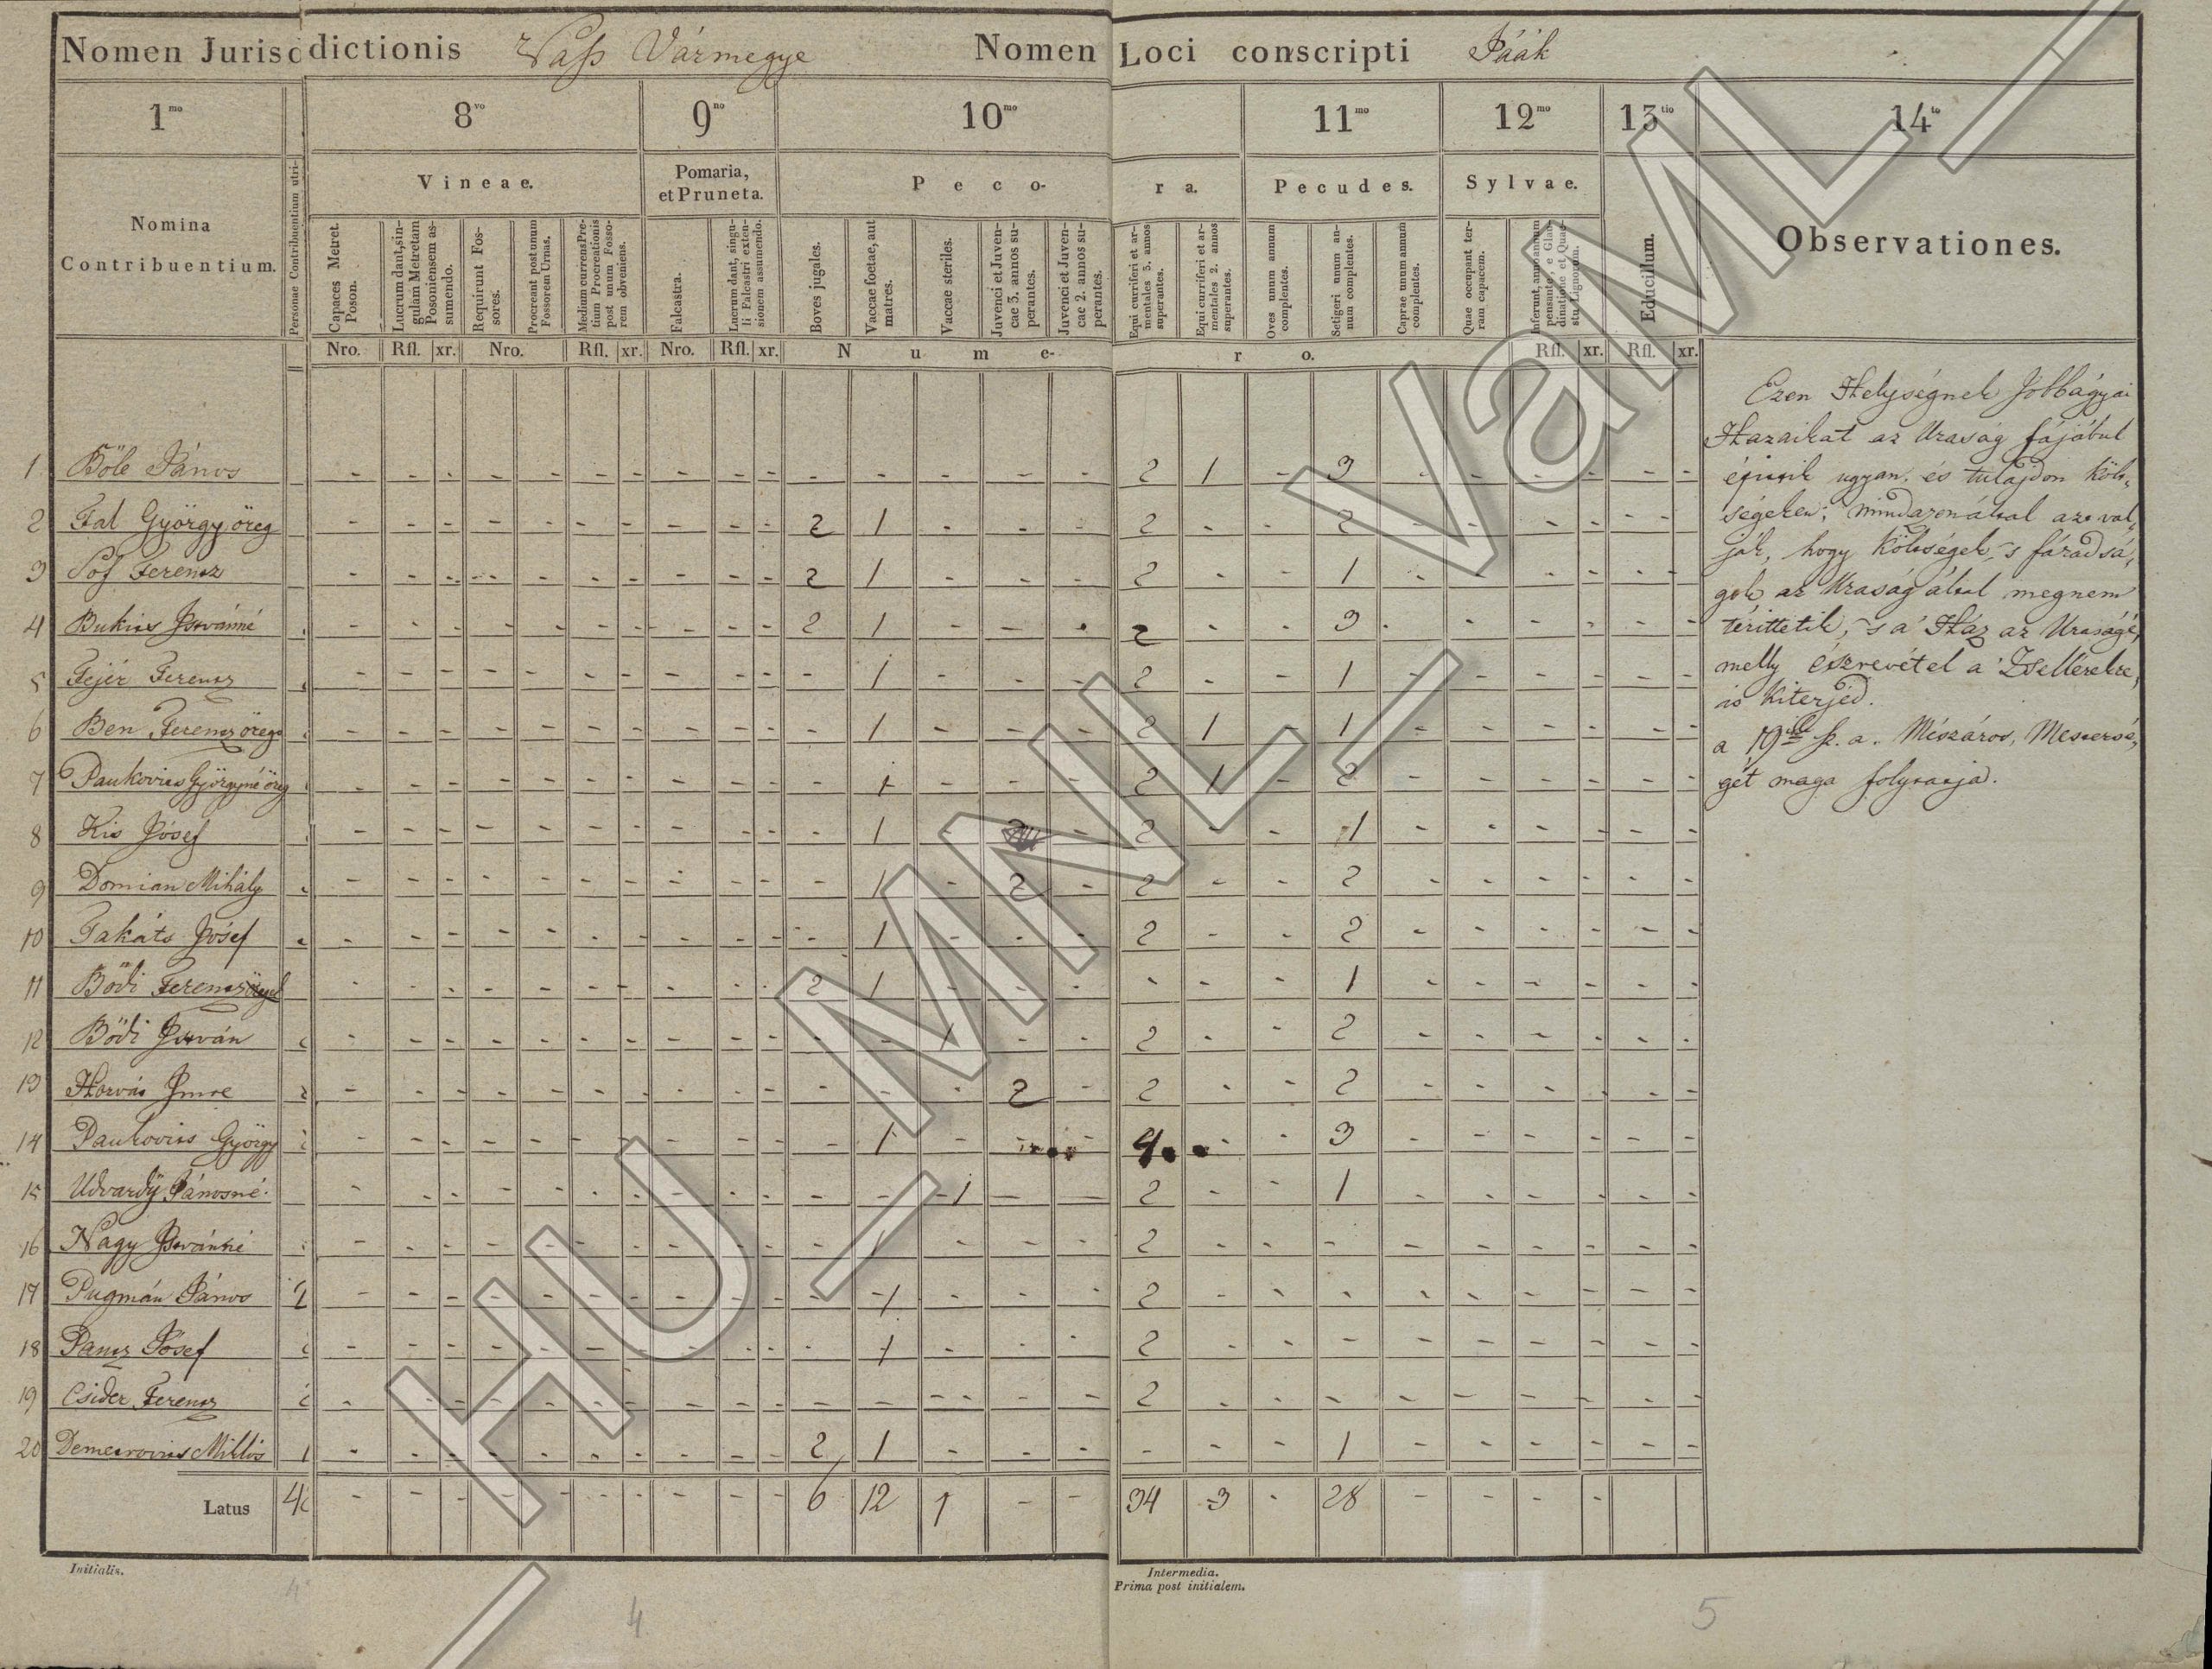 Nomen Jurisdictionis Vass Vármegye Nomen Loci conscripti Jáák
1mo 8vo 9no 10mo 11mo 12mo 13tio 14to
Nomina Contribuentium.
Personae Contribuentium utri-
Vineae.
Pomaria, et Pruneta.
Peco-ra.
Pecudes.
Sylvae.
Educillum.
Observationes.
Capaces Metret. Poson.
Lucrum dant, singulam Metretam Posoniensem assumendo.
Requirunt Fossores.
Procreant post unum Fossorem Urnas.
Medium currens Pretium Procreationis post unum Fossorem obveniens.
Falcastra.
Lucrum dant, singuli Falcastri extensionem assumendo.
Boves jugales.
Vaccae foetae, aut matres.
Vaccae steriles.
Juvenci et Juvencae 3. annos superantes.
Juvenci et Juvencae 2. annos superantes.
Equi curriferi et armentales 3. annos superantes.
Equi curriferi et armentales 2. annos superantes.
Oves unum annum complentes.
Setigeri unum annum complentes.
Caprae unum annum complentes.
Quae occupant terram capacem.
Inferunt, anno annum pensante, e Glandinatione et Quaestu Lignorum.
Nro. Rfl. xr. Nro. Rfl. xr. Nro. Rfl. xr. Nume- ro. Rfl. xr. Rfl. xr.
1 Böle János - - - - - - - - - - - - - - - 2 1 - 3 - - - - - -
2 Fal György öreg - - - - - - - - - - 2 1 - - - 2 - - 2 - - - - - -
3 Sóf Ferencz - - - - - - - - - - 2 1 - - - 2 - - 1 - - - - - -
4 Bukics Istvánné - - - - - - - - - - 2 1 - - - 2 - - 3 - - - - - -
5 Fejér Ferencz - - - - - - - - - - - 1 - - - 2 - - 1 - - - - - -
6 Ben Ferencz öreg - - - - - - - - - - - 1 - - - 2 1 - 1 - - - - - -
7 Paukovics Györgyné öreg - - - - - - - - - - - 1 - - - 2 1 - 2 - - - - - -
8 Kis Jósef - - - - - - - - - - - 1 - - 2 - - 1 - - - - - -
9 Domian Mihály - - - - - - - - - - - 1 - 2 - 2 - - 2 - - - - - -
10 Takáts Jósef - - - - - - - - - - - 1 - - - 2 - - 2 - - - - - -
11 Bödi Ferencz - - - - - - - - - - 2 1 - - - - - - 1 - - - - - -
12 Bödi István - - - - - - - - - - - - 1 - - 2 - - 2 - - - - - -
13 Horvát Imre - - - - - - - - - - - - - 2 - 2 - - 2 - - - - - -
14 Paukovics György - - - - - - - - - - - 1 - - - 4 - - 3 - - - - - -
15 Udvardÿ Jánosné - - - - - - - - - - - - 1 - - 2 - - 1 - - - - - -
16 Nagy Istvánné - - - - - - - - - - - 1 - - - 2 - - - - - - - - -
17 Pugmán János 2 - - - - - - - - - - - 1 - - - 2 - - - - - - - - -
18 Pancz Jósef - - - - - - - - - - - 1 - - - 2 - - - - - - - - -
19 Csider Ferencz - - - - - - - - - - - - - - - 2 - - - - - - - - -
20 Demetrovics Miklós 1 - - - - - - - - - - 2 1 - - - - - - 1 - - - - - -
Latus - - - - - - - - - - 6 12 1 - - 34 3 - 28 - - - -
Ezen Helységnek Jobbágyai
Házaikat az Uraság fájábul
épitik ugyan, és tulajdon költ,
ségeken; mindazonáltal azt val,
ják, hogy költségek, 's fáradsá,
gok az Uraság által megnem
téríttetik, 's a' Ház az Uraságé,
melly észrevétel a' Zsellérekre,
is kiterjed.
a 19ik sz. a. Mészáros, Mesters,
gét maga folytatja.
Initialis.
Intermedia.
Prima post initialem.
4
5
HU_MNL_VaML_